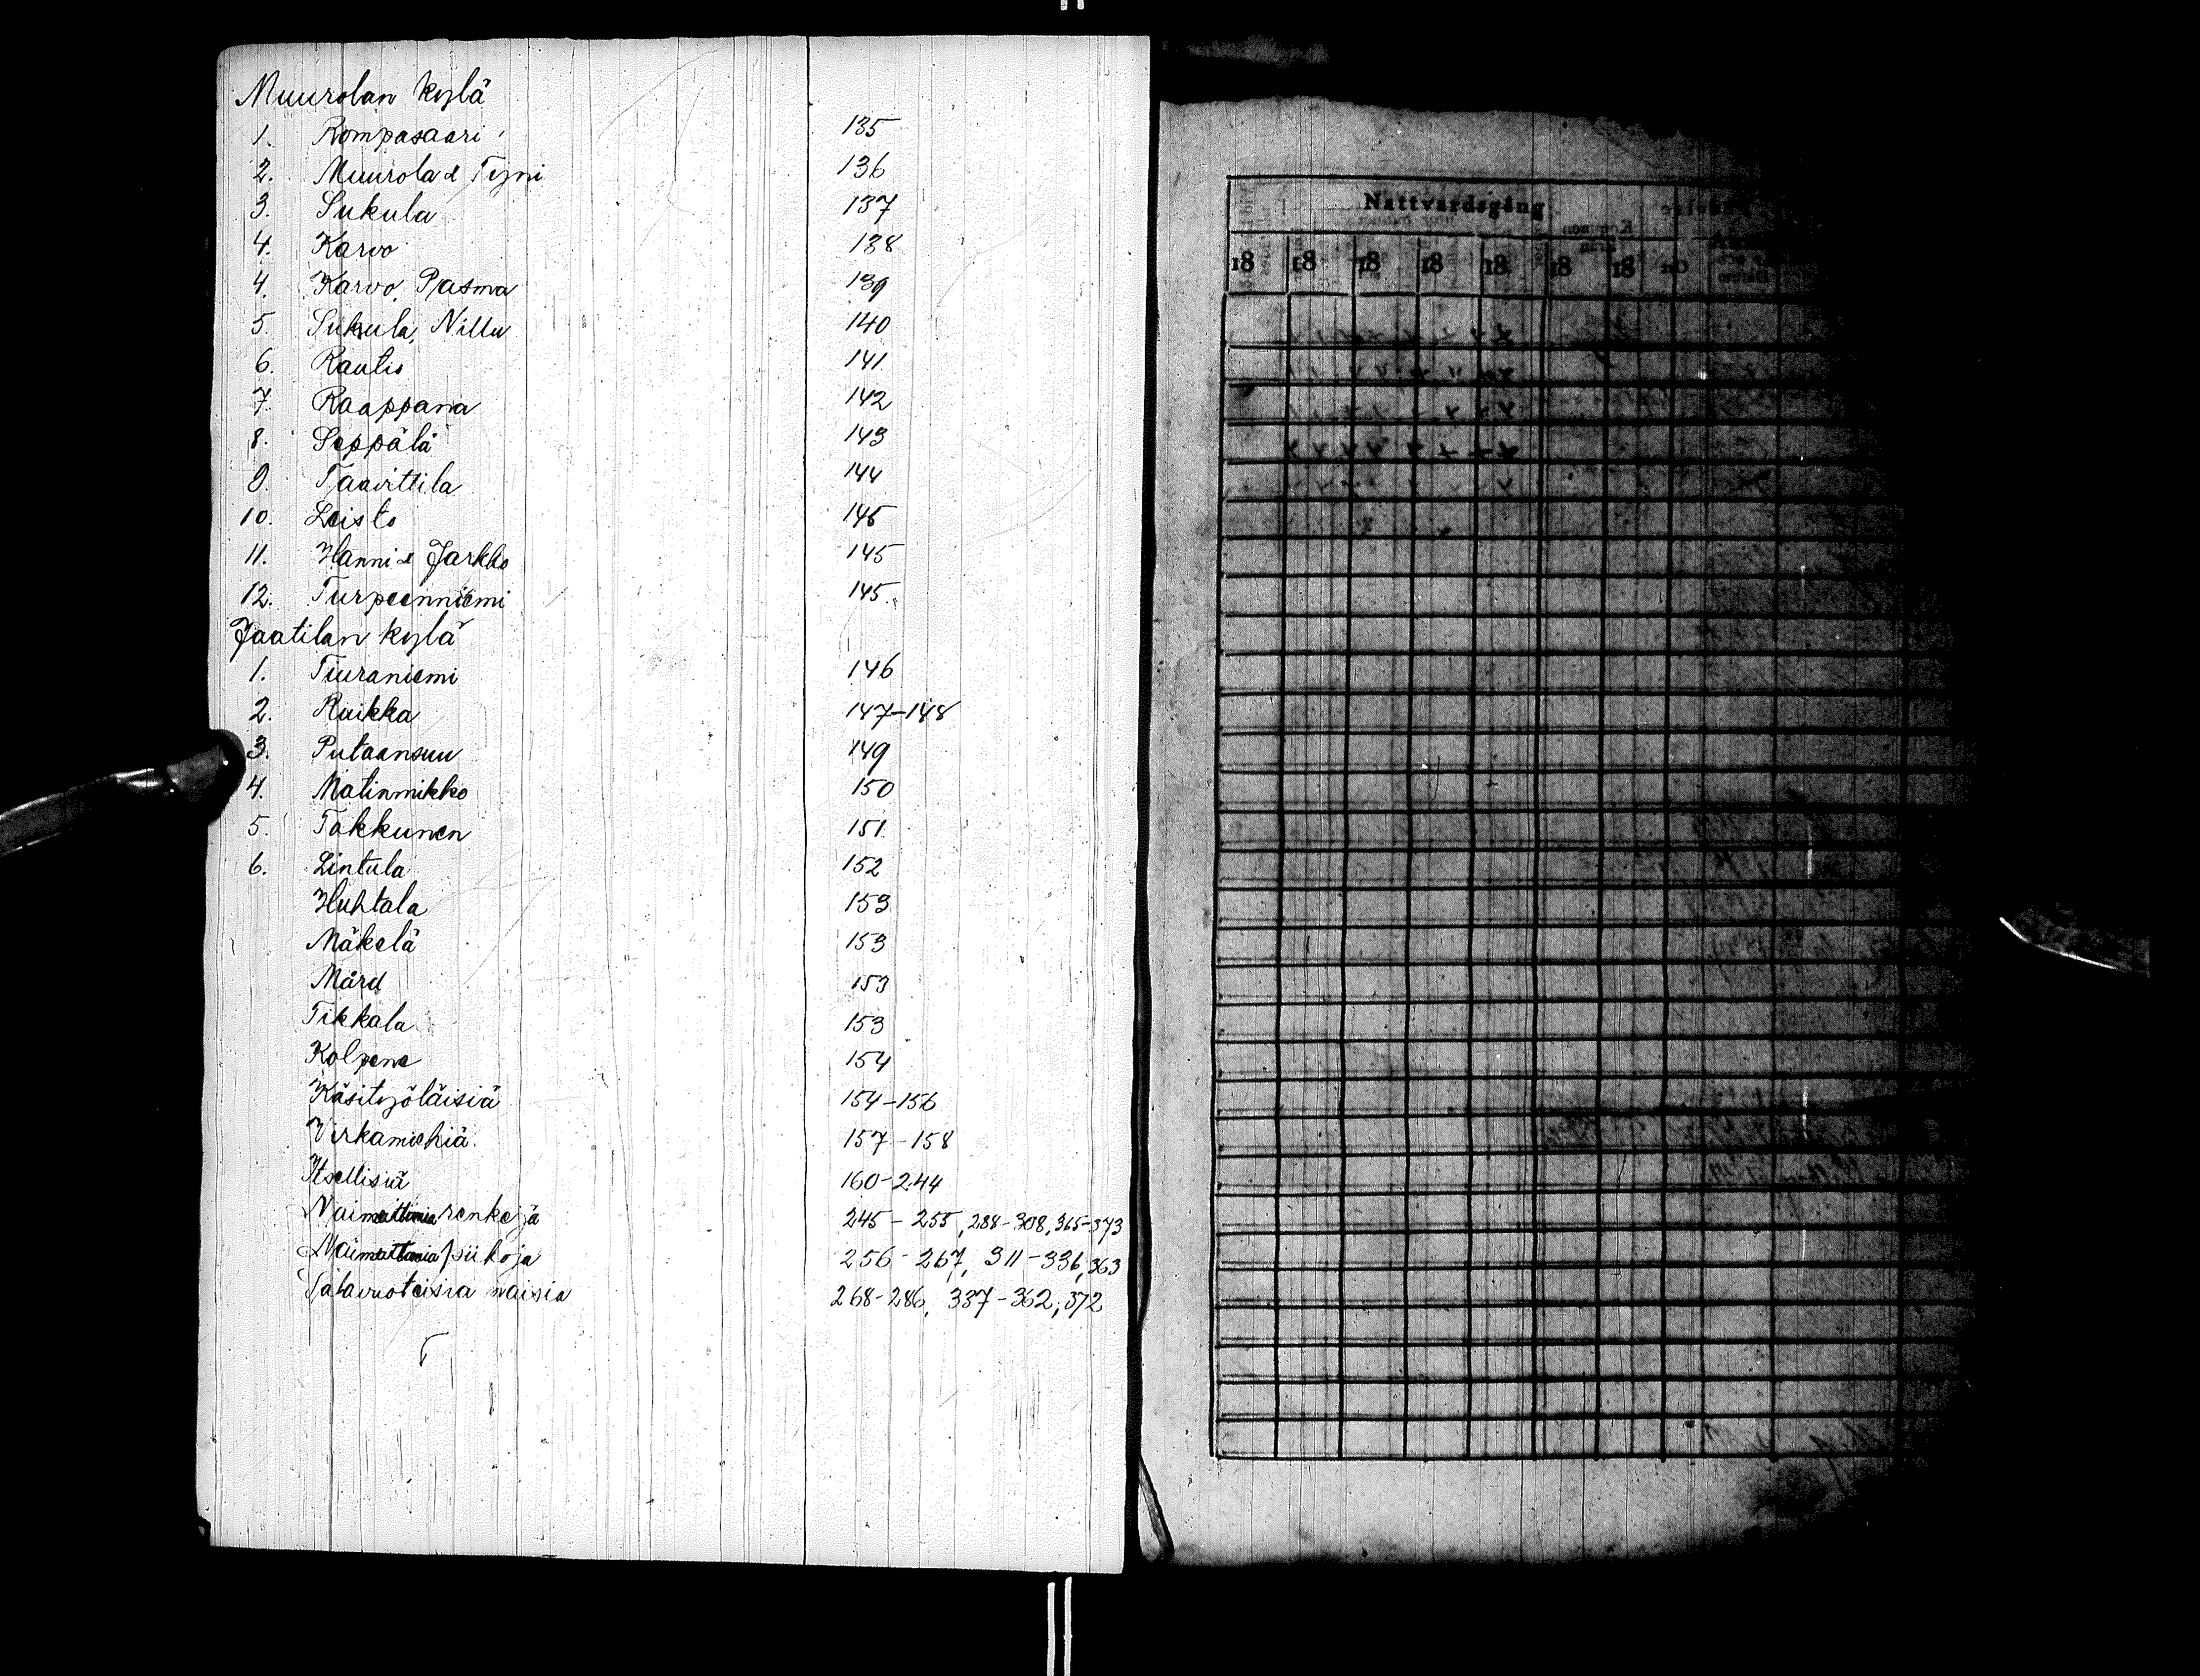 Muurolan kylä
1. Rompasaari 135
2. Muurola & Tyni 136
3. Sukula 137
4. Karvo 138
4. Karvo, Pasma 139
5. Sukula, Nillu 140
6. Rautio 141
7. Raappana 142
8. Seppälä 143
9. Taavittila 144
10. Leisto 145
11. Hanni & Jarkko 145
12. Turpeenniemi 145
Jaatilan kylä
1. Tiuraniemi 146
2. Ruikka 147-148
3. Putaansuu 149
4. Matinmikko 150
5. Takkunen 151
6. Lintula 152
Huhtala 153
Mäkelä 153
Mård 153
Tikkala 153
Kolpene 154
Käsityöläisiä 154-156
Virkamiehiä 157-158
Itsellisiä 160-244
renkejä 245-255, 288-308, 365-373
piikoja 256-267, 311-336, 363
naisia 268-286, 337-362, 372
Nattvardsgång
18 18 18 18 18 18 18